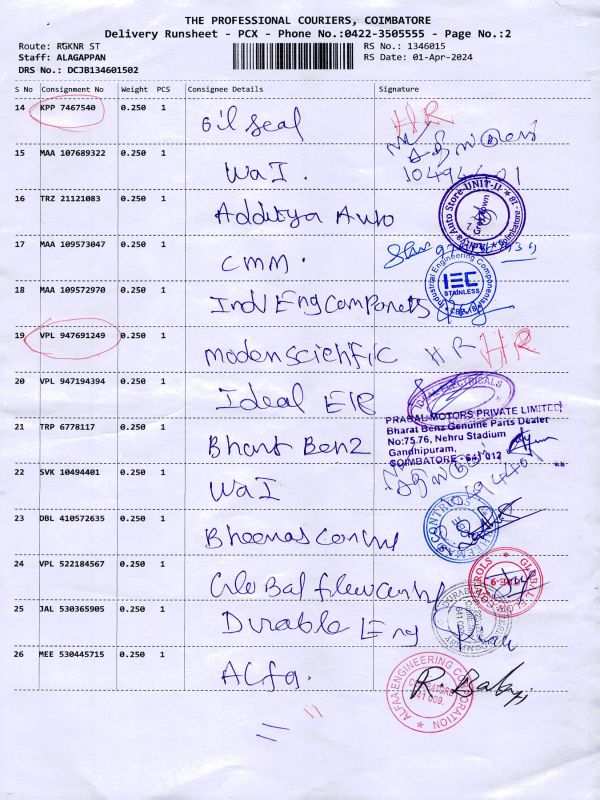 THE PROFESSIONAL COURIERS, COIMBATORE
Delivery Runsheet - PCX - Phone No.:0422-3505555 - Page No.:2
Route: RGKNR ST RS No.: 1346015
Staff: ALAGAPPAN RS Date: 01-Apr-2024
DRS No.: DCJB134601502
S No Consignment No Weight PCS Consignee Details Signature
14 KPP 7467540 0.250 1 Oil Seal HR
15 MAA 107689322 0.250 1 WaI.
16 TRZ 21121083 0.250 1 Additya Auto
17 MAA 109573047 0.250 1 CMM.
18 MAA 109572970 0.250 1 Ind Eng Componets
IEC
STAINLESS
19 VPL 947691249 0.250 1 modenscietific HR HR
20 VPL 947194394 0.250 1 Ideal Ele
IDEAL ELECTRICALS
21 TRP 6778117 0.250 1 Bhart Benz
PRABAL MOTORS PRIVATE LIMITED
Bharat Benz Genuine Parts Dealer
No:75.76, Nehru Stadium
Gandhipuram,
COIMBATORE - 641 012
22 SVK 10494401 0.250 1 WaI
23 DBL 410572635 0.250 1
24 VPL 522184567 0.250 1
25 JAL 530365905 0.250 1 Durable Eng
26 MEE 530445715 0.250 1 Alfa.
ALFAA ENGINEERING CORPORATION
COIMBATORE
641 009.
R. Balaji